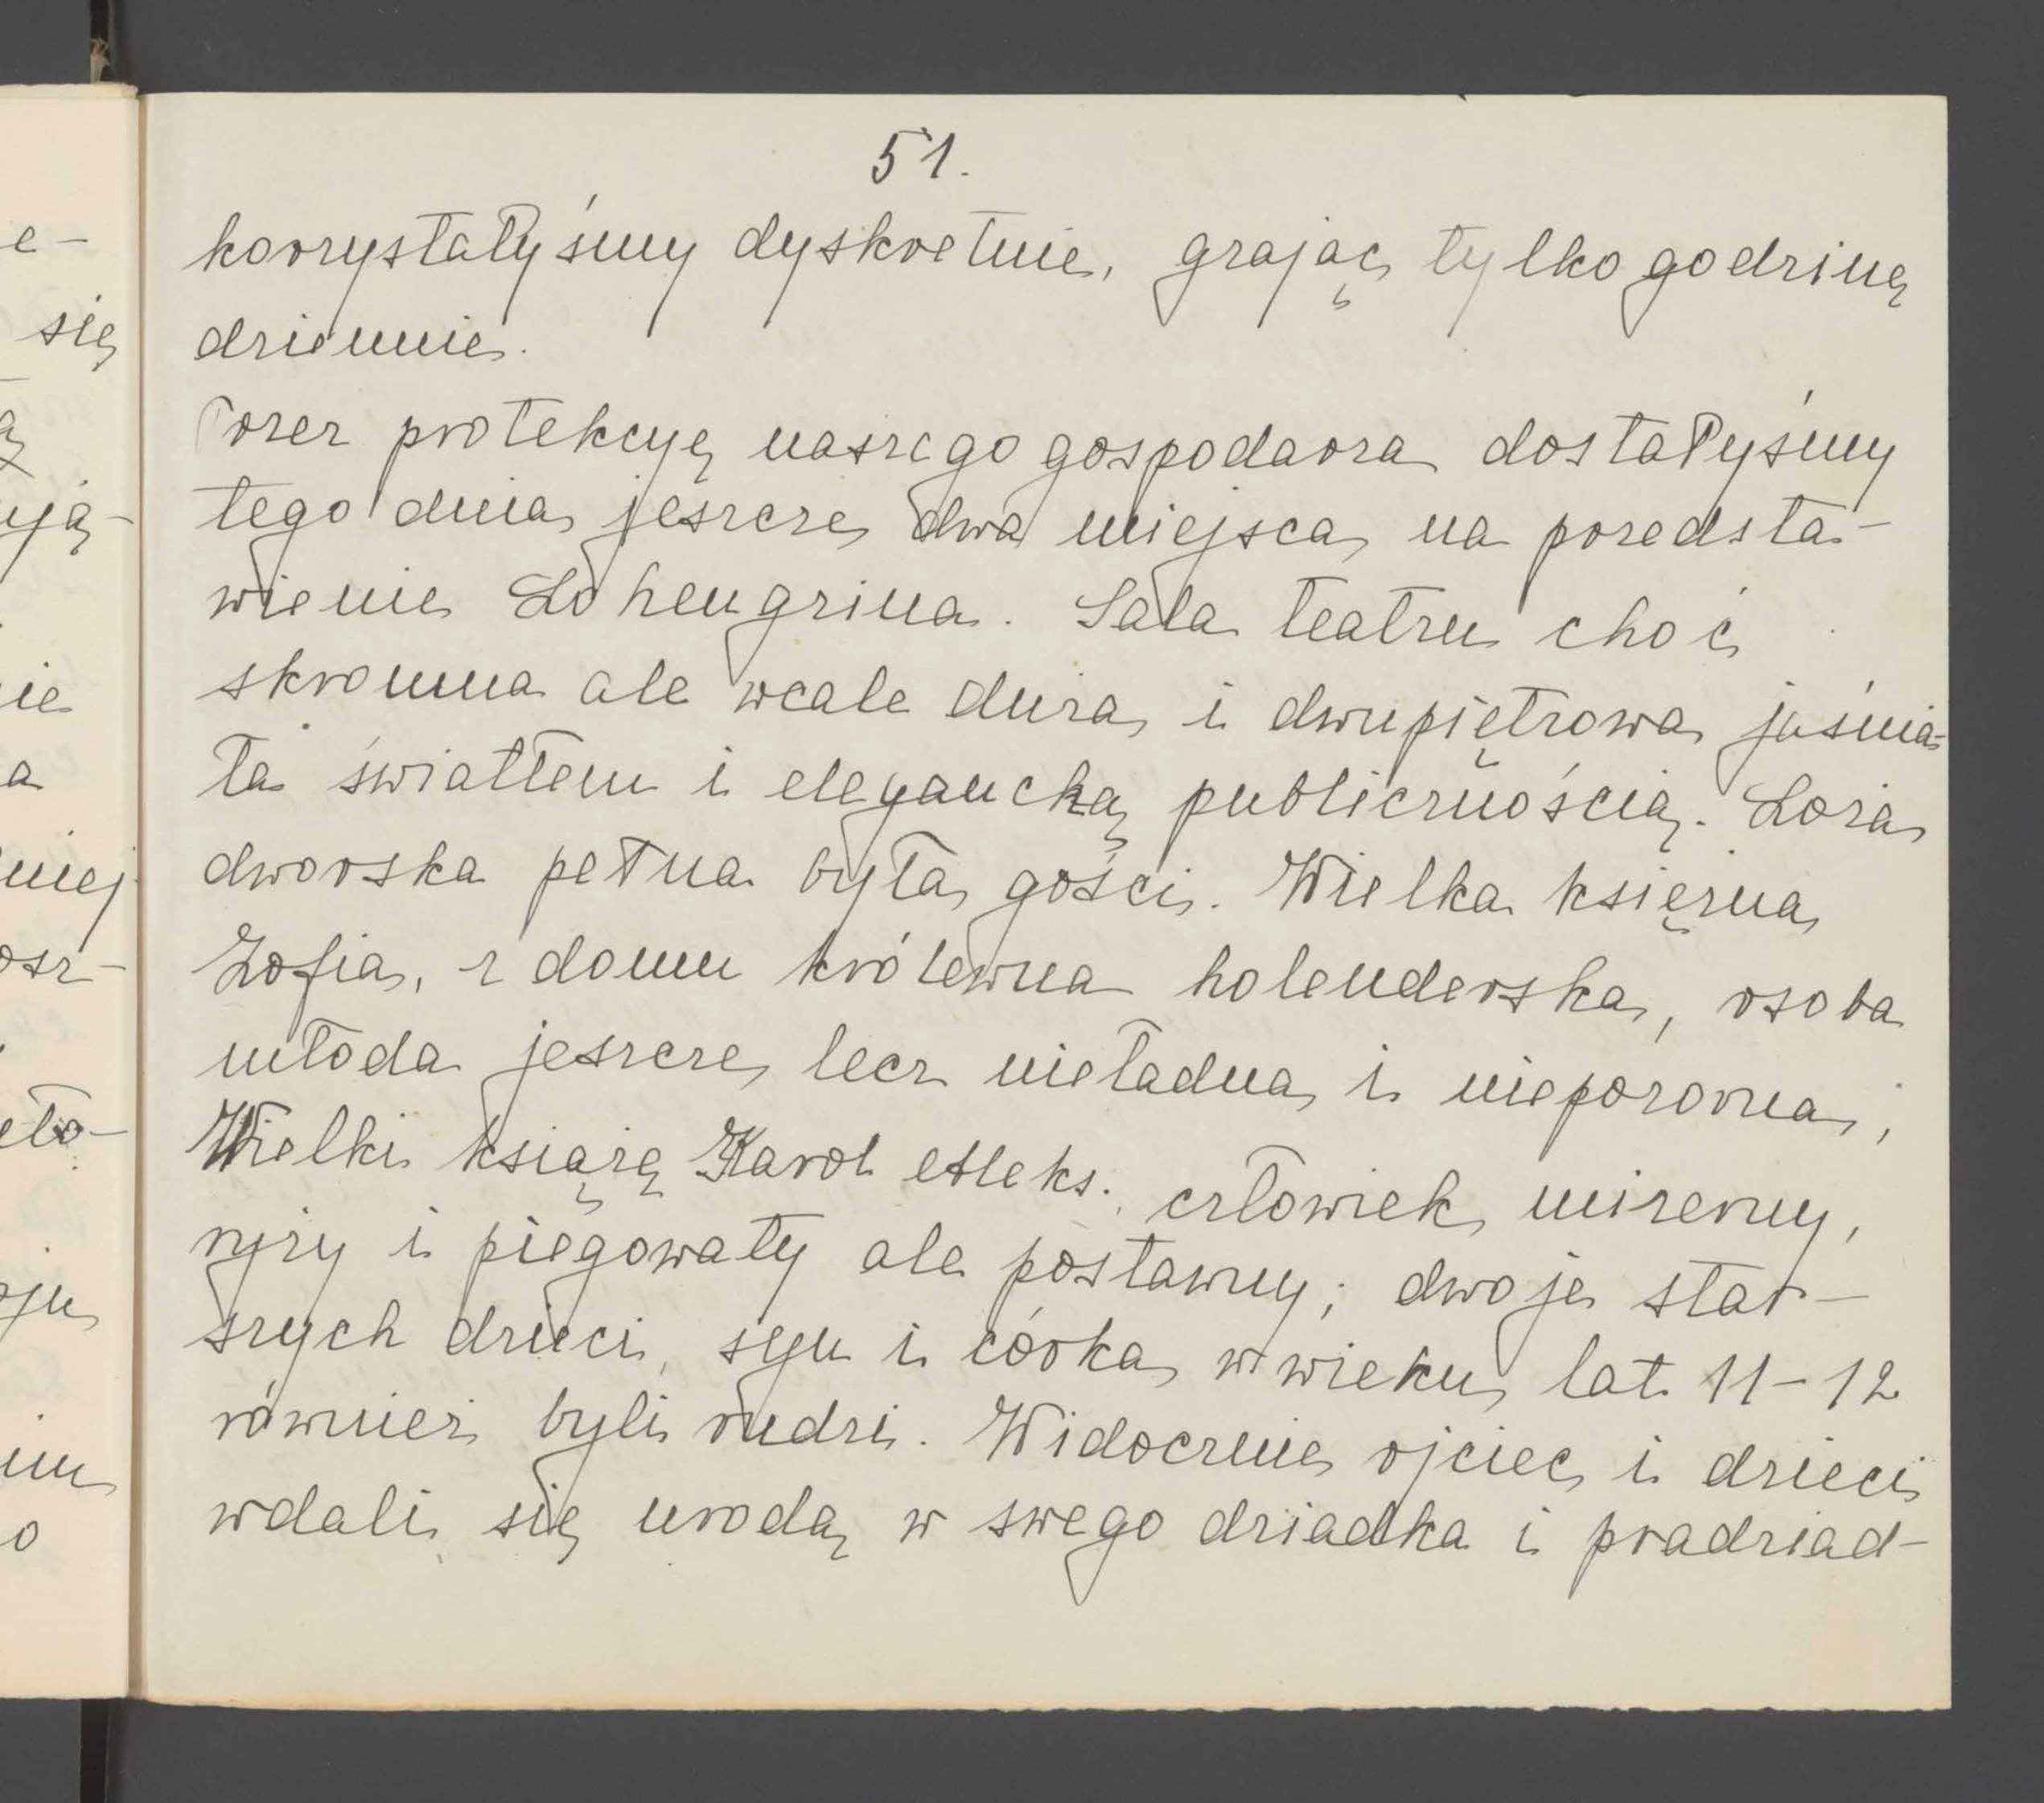 e-
się
ą
ują-
ie
a
niej
osz-
eło-
oju
im
o
51.
korzystałyśmy dyskretnie, grając tylko godzinę
dziennie.
Przez protekcyę naszego gospodarza dostałyśmy
tego dnia jeszcze dwa miejsca na przedsta-
wienie Lohengrina. Sala teatru choć
skromna ale wcale duża i dwupiętrowa jaśnia-
ła światłem i elegancką publicznością. Loża
dworska pełna była gości. Wielka księżna
Zofia, z domu królewna holenderska, osoba
młoda jeszcze, lecz nieładna i niepozorna;
Wielki książę Karol Aleks. człowiek mizerny,
ryży i piegowaty ale postawny; dwoje star-
szych dzieci, syn i córka w wieku lat 11-12
również byli rudzi. Widocznie ojciec i dzieci
wdali się urodą w swego dziadka i pradziad-